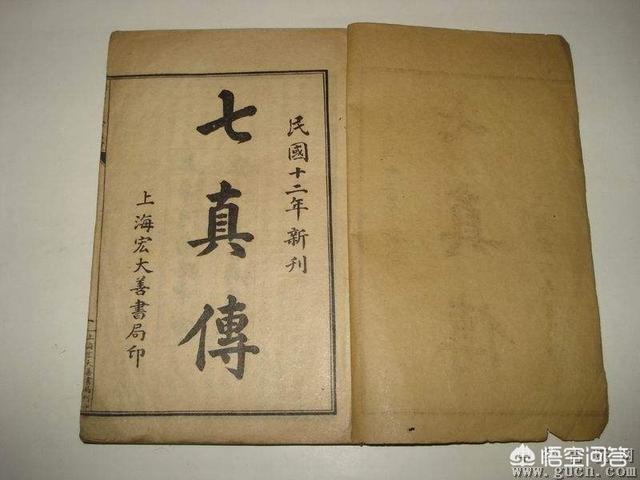 民國十二年新刊
七真傳
上海宏大善書局印
悟空问答
www.gucn.com